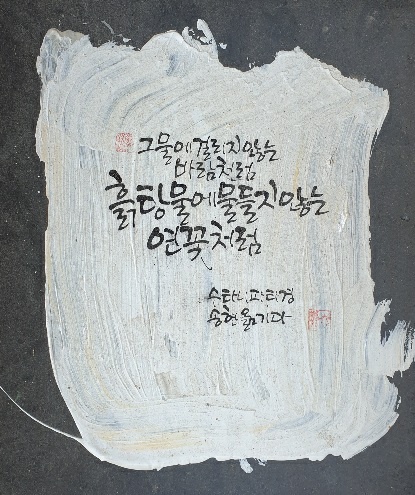 그물에 걸리지 않는
바람처럼
흙탕물에 물들지 않는
연꽃처럼
수타니파타경
송헌 옮기다